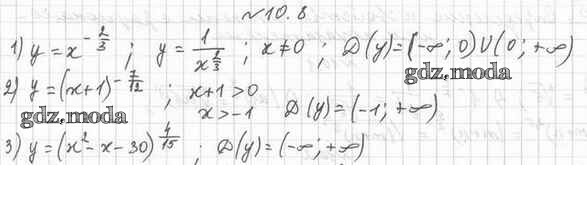 №10.8
1) y = x^{-2/3} ; y = 1/x^{2/3} ; x ≠ 0 ; D(y) = (-∞; 0) U (0; +∞)
gdz.moda
2) y = (x+1)^{-7/12} ; x+1 > 0
x > -1 D(y) = (-1; +∞)
gdz.moda
3) y = (x² - x - 30)^{4/15} ; D(y) = (-∞; +∞)